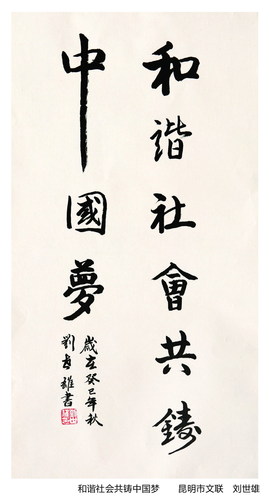 和諧社會共鑄
中國夢
歲在癸巳年秋
劉世雄書
和谐社会共铸中国梦 昆明市文联 刘世雄